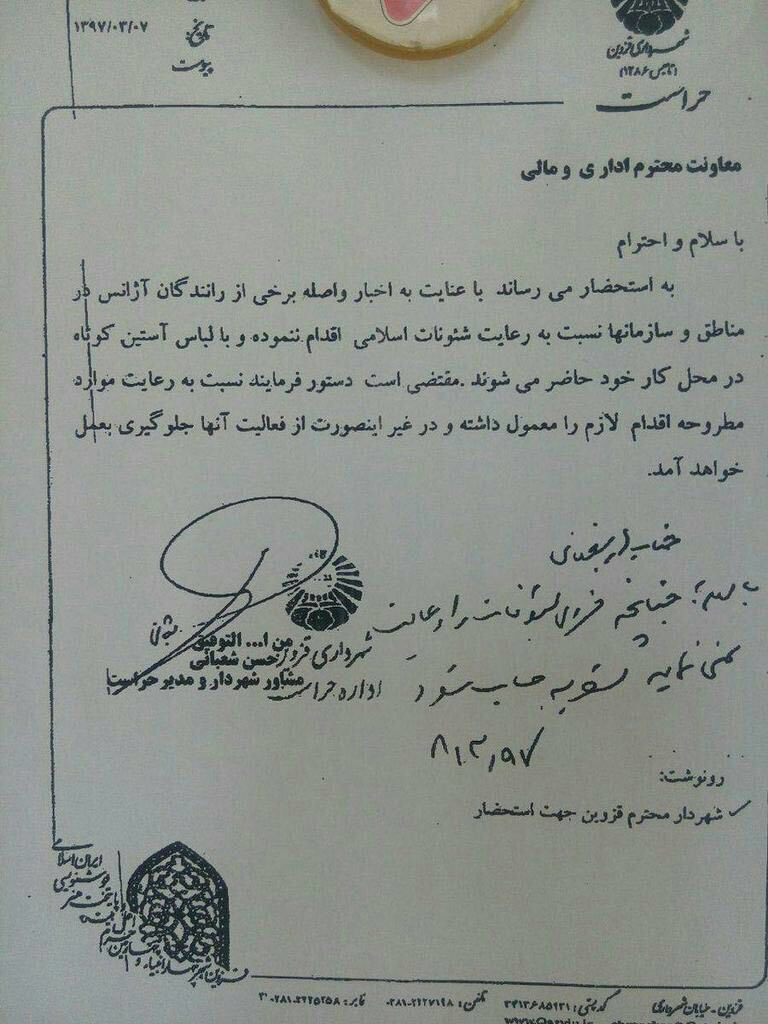 تاریخ: ۱۳۹۷/۰۳/۰۷
پیوست
شهرداری قزوین
(تاسیس ۱۲۸۶)
حراست
معاونت محترم اداری و مالی
با سلام و احترام
به استحضار می رساند با عنایت به اخبار واصله برخی از رانندگان آژانس در
مناطق و سازمانها نسبت به رعایت شئونات اسلامی اقدام ننموده و با لباس آستین کوتاه
در محل کار خود حاضر می شوند .مقتضی است دستور فرمایند نسبت به رعایت موارد
مطروحه اقدام لازم را معمول داشته و در غیر اینصورت از فعالیت آنها جلوگیری بعمل
خواهد آمد.
جناب
چنانچه شئونات را رعایت
نمی نمایند تسویه حساب شود
۹۷/۳/۸
من ا... التوفیق
حسن شعبانی
مشاور شهردار و مدیر حراست
شهرداری قزوین
اداره حراست
رونوشت:
شهردار محترم قزوین جهت استحضار
قزوین - خیابان شهرداری کد پستی: ۳۴۱۳۶۸۵۹۳۱ تلفن: ۰۲۸۱-۲۲۲۷۱۹۸